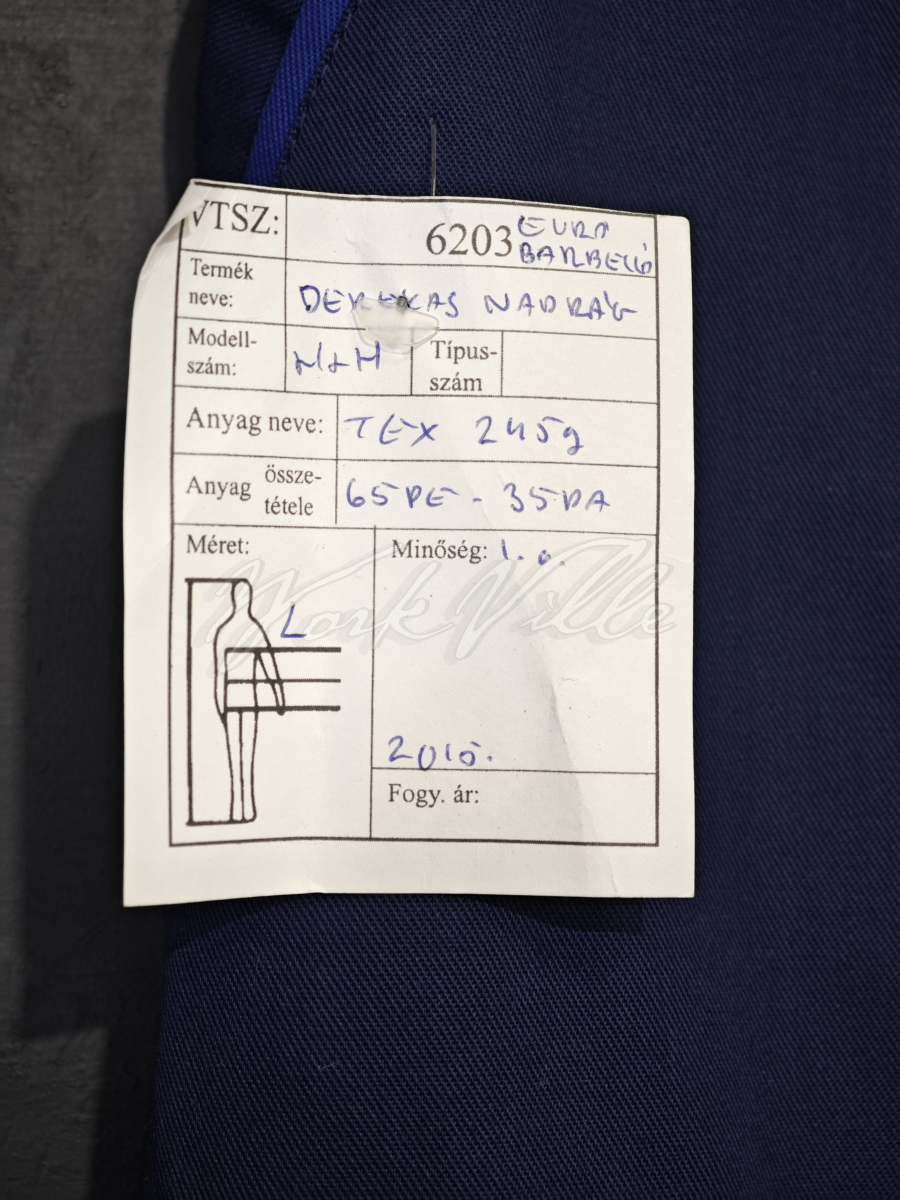 VTSZ: 6203 EURO
BARBELL
Termék neve: DEREKAS NADRÁG
Modell-
szám: M+M Típus-
szám
Anyag neve: TEX 245g
Anyag össze-
tétele 65PE - 35PA
Méret: L
Minőség: I. o.
2015.
Fogy. ár:
York Ville